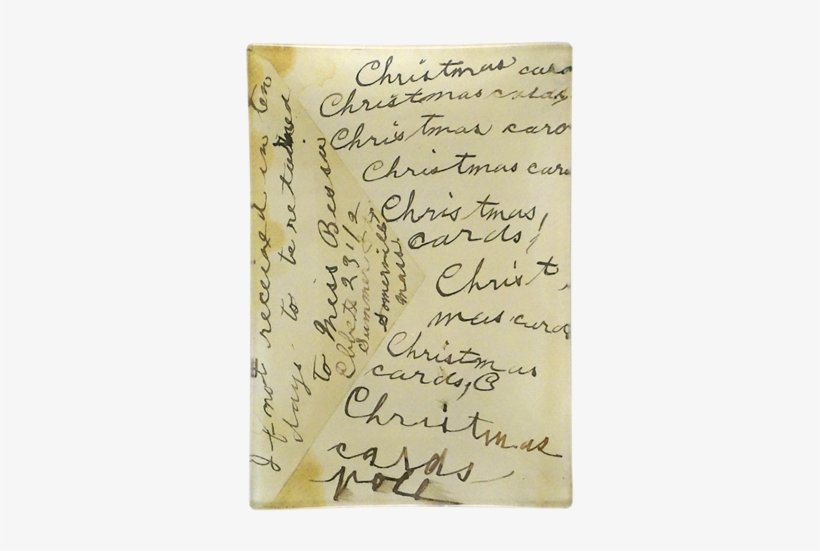 Christmas card
Christmas cards
Christmas card
Christmas card
Christmas
cards!
Christ,
mas cards
Christmas
cards,
Christmas
cards
If not received in ten
days to be returned
to Miss Bessie
231/2
Summer St
Somerville
Mass